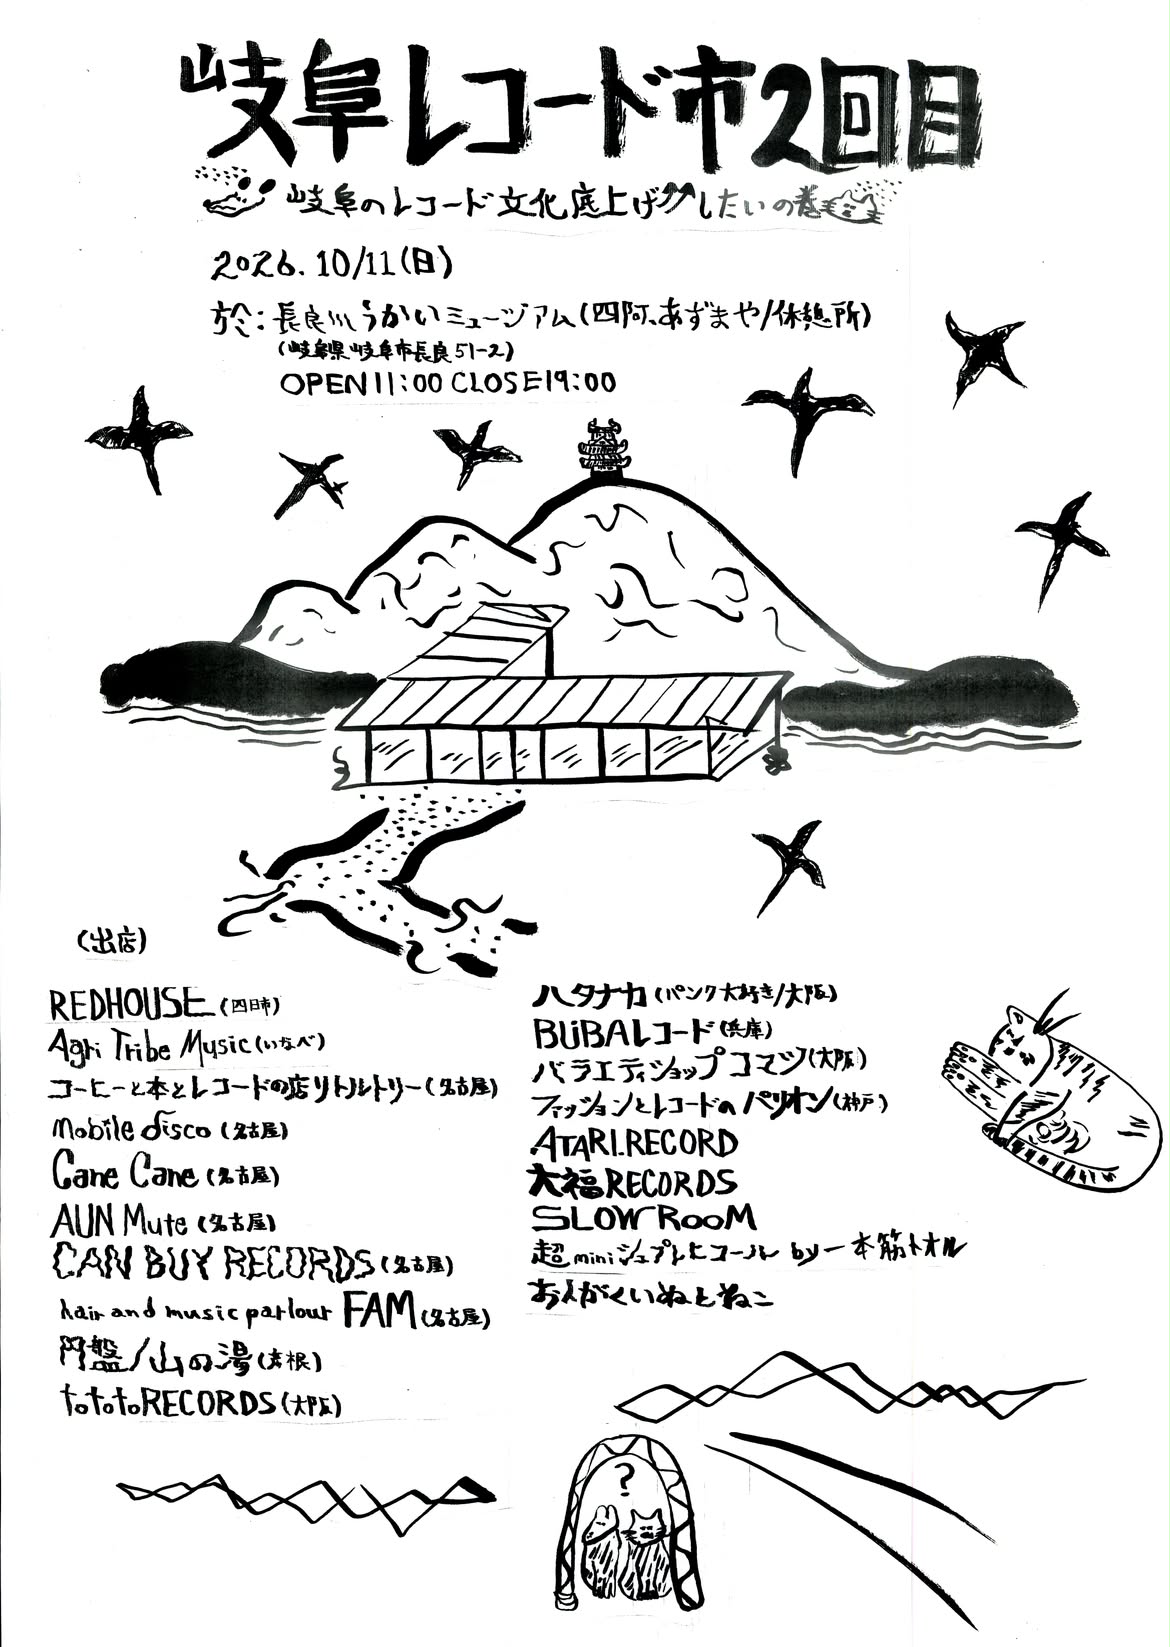 岐阜レコード市2回目
岐阜のレコード文化底上げしたいの巻
2026.10/11(日)
於:長良川うかいミュージアム(四阿、あずまや/休憩所)
(岐阜県岐阜市長良51-2)
OPEN11:00 CLOSE19:00
(出店)
REDHOUSE(四日市)
Agri Tribe Music(いなべ)
コーヒーと本とレコードの店リトルトリー(名古屋)
mobile disco(名古屋)
Cane Cane(名古屋)
AUN Mute(名古屋)
CAN BUY RECORDS(名古屋)
hair and music parlour FAM(名古屋)
円盤/山の湯(彦根)
tototoRECORDS(大阪)
ハタナカ(パンク大好き/大阪)
BUBALレコード(兵庫)
バラエティショップコマツ(大阪)
ファッションとレコードのパリオン(神戸)
ATARI.RECORD
大福RECORDS
SLOW RooM
超miniシュプレヒコール by 一本筋トオル
おんがくいぬとねこ
?